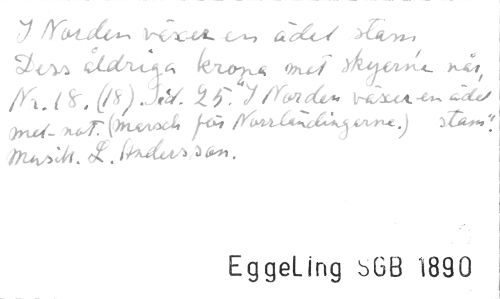 I Norden växer en ädel stam
Dess åldriga krona mot skyerne når,
Nr. 18. (18). Sid. 25. "I Norden växer en ädel
met-not. (marsch för Norrländingarne.) stam".
Musik. L. Andersson.
EggeLing SGB 1890